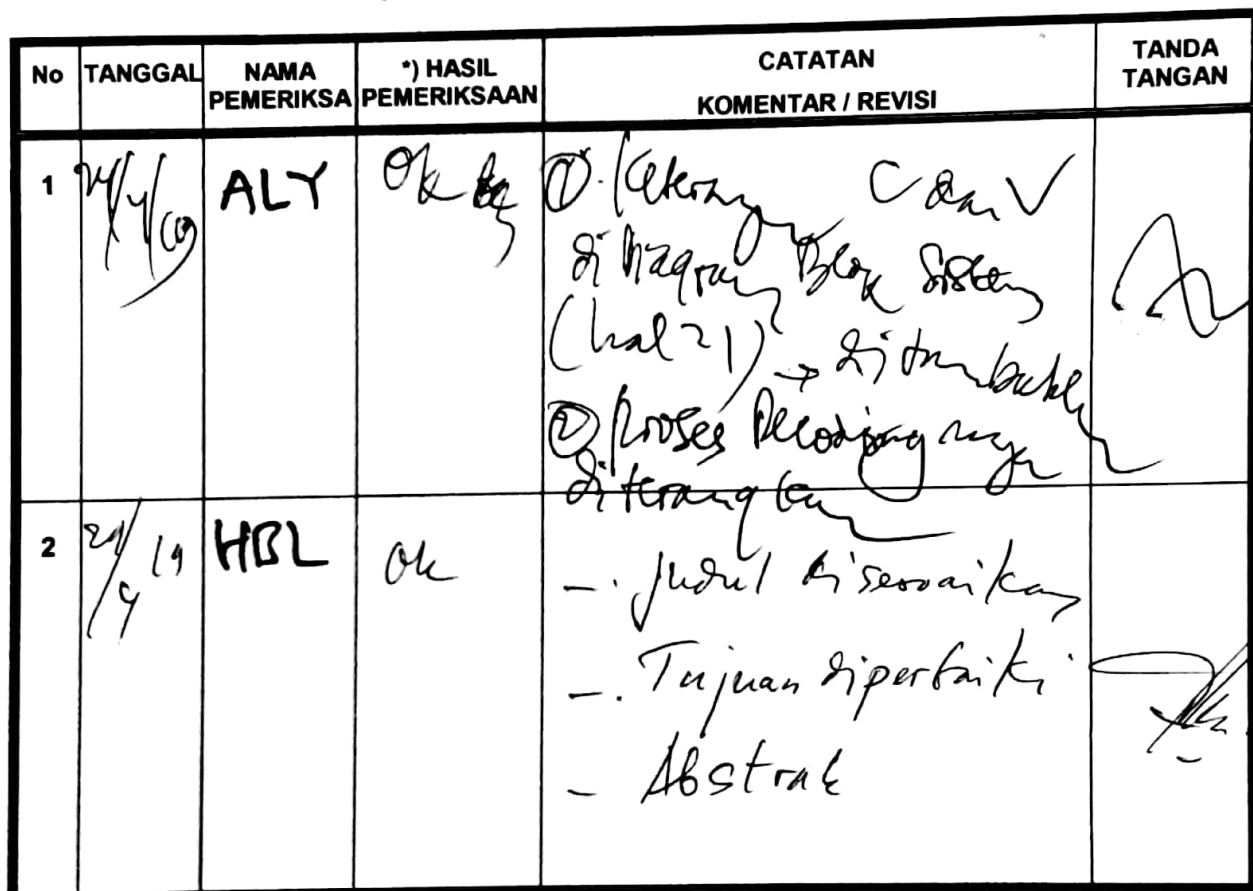 No TANGGAL NAMA PEMERIKSA *) HASIL PEMERIKSAAN CATATAN KOMENTAR / REVISI TANDA TANGAN
1 ALY Ok
① Keterangan C dan V
di Diagram Blok Sistem
(hal 21) → ditambahkan
② Proses Decodingnya
diterangkan
2 HBL Ok
-. Judul disesuaikan
-. Tujuan diperbaiki
- Abstrak